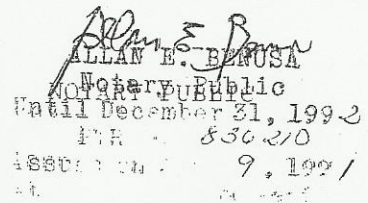 ALLAN E. BENUSA
Notary Public
NOTARY PUBLIC
Until December 31, 1992
PTR 830210
9, 1991